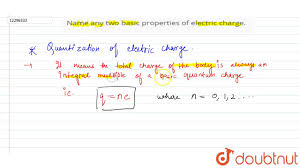 12296332
Name any two basic properties of electric charge.
* Quantization of electric charge.
→ It means the total charge of the body is always an
Integral multiple of a basic quantum charge.
ie. q = ne where n = 0, 1, 2 ....
doubtnut